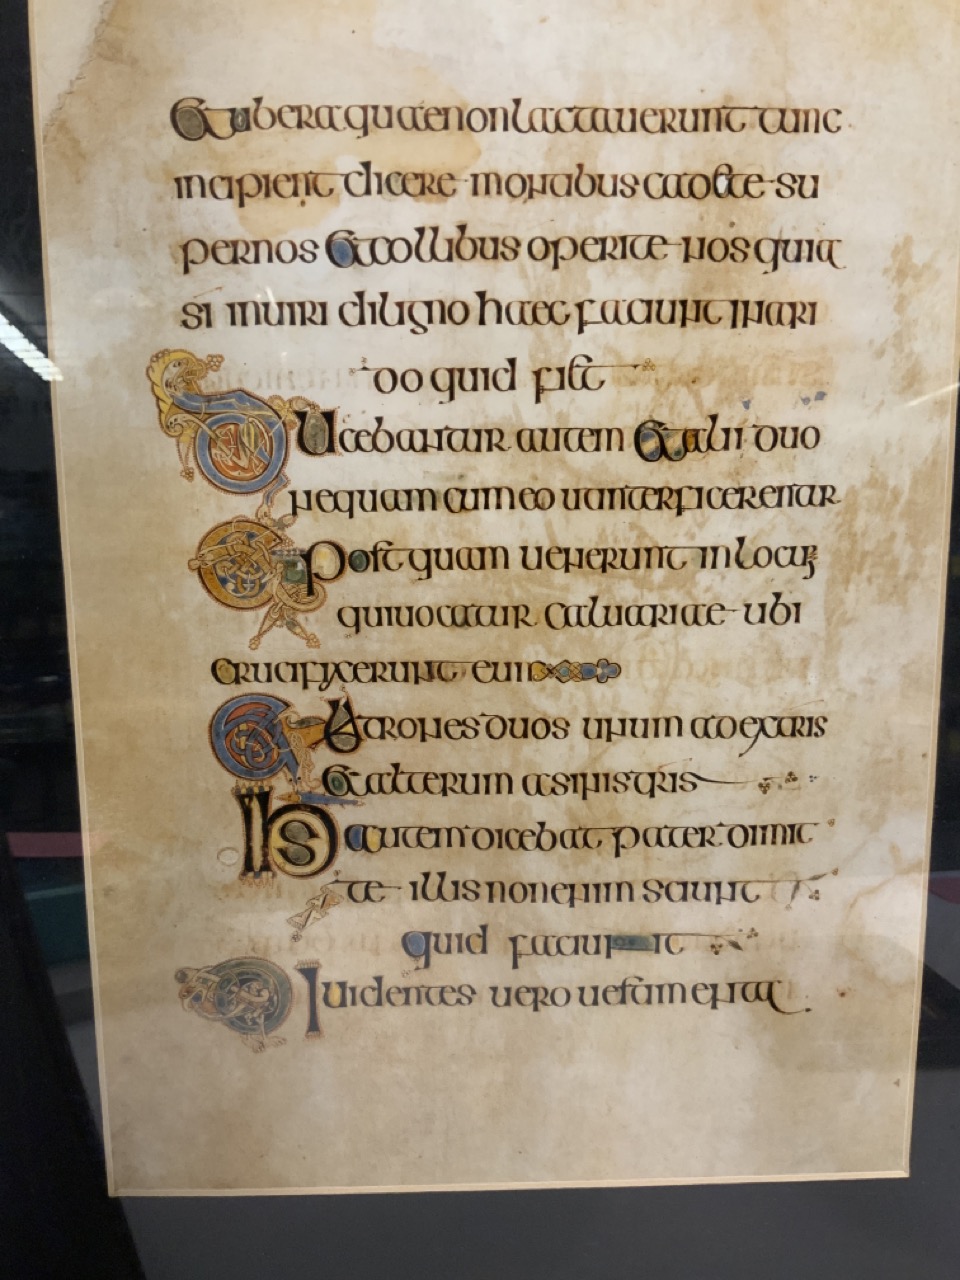 Et ubera quae non lactauerunt tunc
incipient dicere montibus cadete su
per nos Et collibus operite nos quia
si in uiridi ligno haec faciunt in ari
do quid fiet
Ducebantur autem Et alii duo
nequam cum eo ut interficerentur
Et postquam uenerunt in locum
qui uocatur caluariae ubi
crucifixerunt eum
Et latrones duos unum ad extris
Et alterum a sinistris
Ihs autem dicebat pater dimit
te illis non enim sciunt
quid faciunt
Diuidentes uero uestimenta